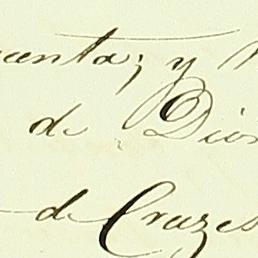 uenta; y
de Dios
de Cruzes